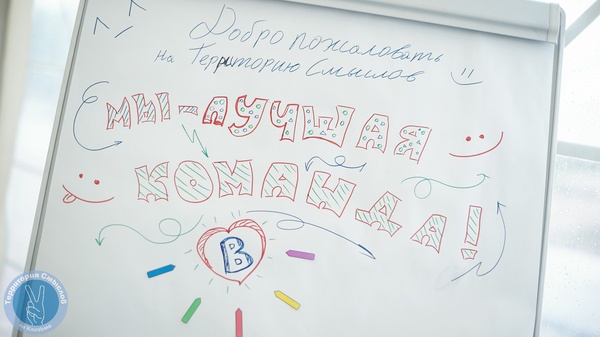 Добро пожаловать
на Территорию Смыслов
МЫ-ЛУЧШАЯ
КОМАНДА!
В
Территория Смыслов